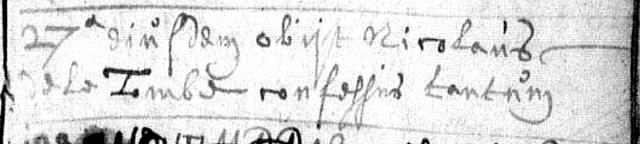 27ᵃ eiusdem obijt Nicolaus
dele Tombe confessus tantum